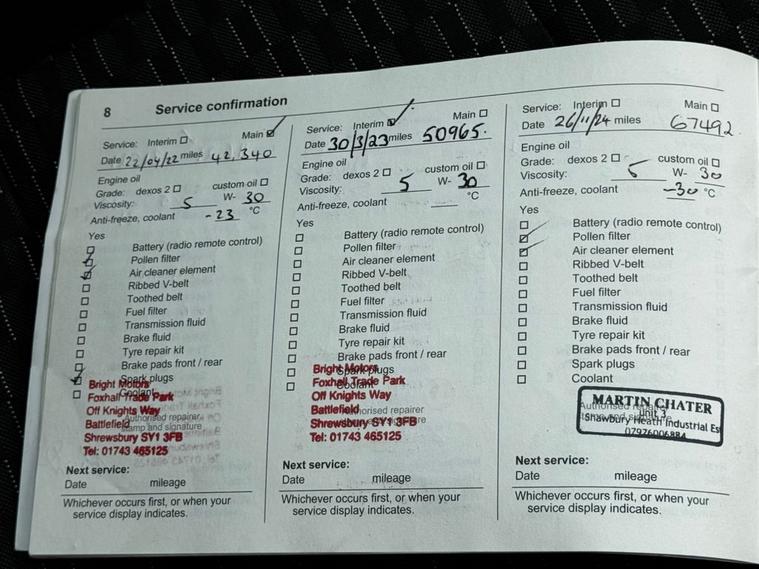 8 Service confirmation
Service: Interim Main
Date 22/04/22 miles 42,340
Engine oil
Grade: dexos 2 custom oil
Viscosity: 5 W- 30
Anti-freeze, coolant -23 °C
Yes
Battery (radio remote control)
Pollen filter
Air cleaner element
Ribbed V-belt
Toothed belt
Fuel filter
Transmission fluid
Brake fluid
Tyre repair kit
Brake pads front / rear
Spark plugs
Coolant
Bright Motors
Foxhall Trade Park
Off Knights Way
Battlefield
Shrewsbury SY1 3FB
Tel: 01743 465125
Authorised repairer
stamp and signature
Next service:
Date mileage
Whichever occurs first, or when your
service display indicates.
Service: Interim Main
Date 30/3/23 miles 50965.
Engine oil
Grade: dexos 2 custom oil
Viscosity: 5 W- 30
Anti-freeze, coolant °C
Yes
Battery (radio remote control)
Pollen filter
Air cleaner element
Ribbed V-belt
Toothed belt
Fuel filter
Transmission fluid
Brake fluid
Tyre repair kit
Brake pads front / rear
Spark plugs
Coolant
Bright Motors
Foxhall Trade Park
Off Knights Way
Battlefield
Shrewsbury SY1 3FB
Tel: 01743 465125
Authorised repairer
Next service:
Date mileage
Whichever occurs first, or when your
service display indicates.
Service: Interim Main
Date 26/11/24 miles 67492
Engine oil
Grade: dexos 2 custom oil
Viscosity: 5 W- 30
Anti-freeze, coolant -30 °C
Yes
Battery (radio remote control)
Pollen filter
Air cleaner element
Ribbed V-belt
Toothed belt
Fuel filter
Transmission fluid
Brake fluid
Tyre repair kit
Brake pads front / rear
Spark plugs
Coolant
MARTIN CHATER
Unit 3
Shawbury Heath Industrial Es
07976006884
Authorised
Next service:
Date mileage
Whichever occurs first, or when your
service display indicates.